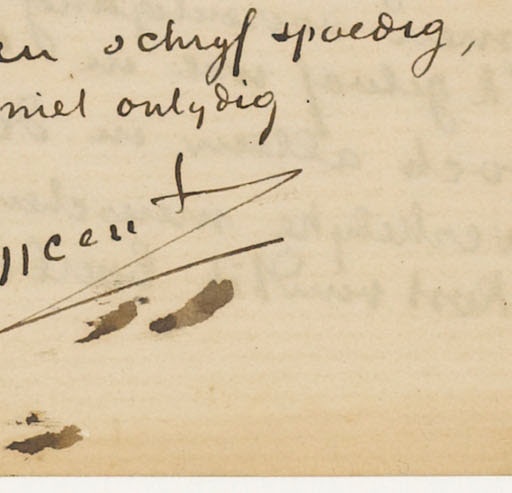 en schryf spoedig,
niet ontydig.
Vincent